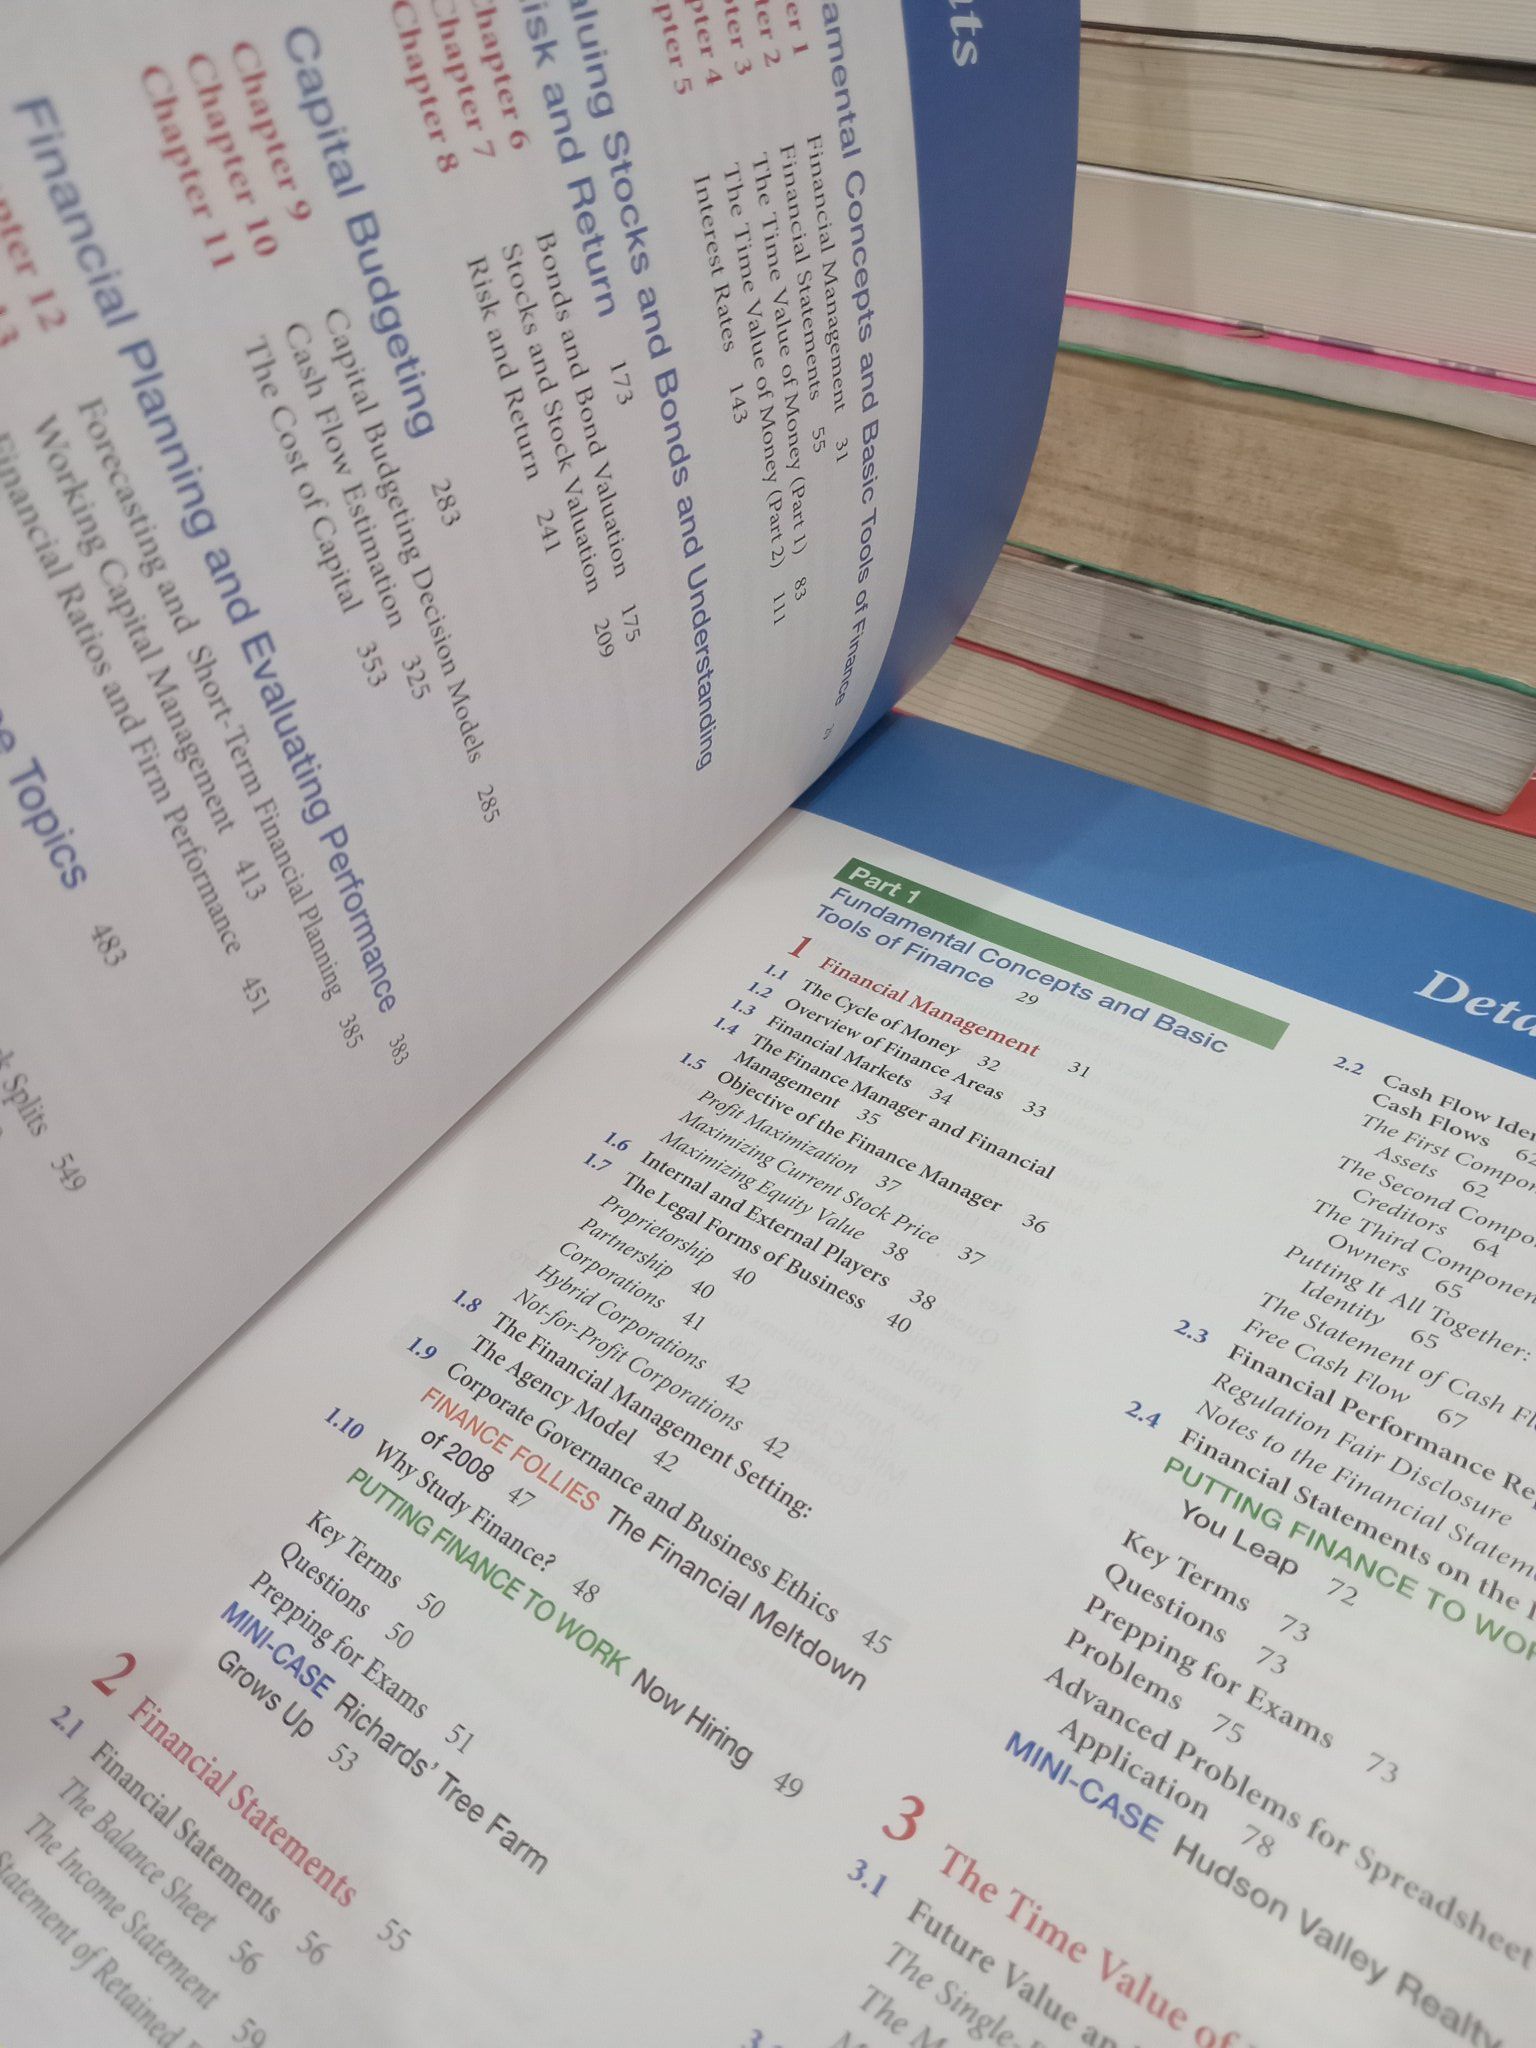 nts
amental Concepts and Basic Tools of Finance 29
er 1 Financial Management 31
ter 2 Financial Statements 55
ter 3 The Time Value of Money (Part 1) 83
pter 4 The Time Value of Money (Part 2) 111
apter 5 Interest Rates 143
aluing Stocks and Bonds and Understanding
isk and Return 173
Chapter 6 Bonds and Bond Valuation 175
Chapter 7 Stocks and Stock Valuation 209
Chapter 8 Risk and Return 241
Capital Budgeting 283
Chapter 9 Capital Budgeting Decision Models 285
Chapter 10 Cash Flow Estimation 325
Chapter 11 The Cost of Capital 353
Financial Planning and Evaluating Performance 383
pter 12 Forecasting and Short-Term Financial Planning 385
13 Working Capital Management 413
Financial Ratios and Firm Performance 451
e Topics 483
k Splits 549
Deta
Part 1
Fundamental Concepts and Basic
Tools of Finance 29
1 Financial Management 31
1.1 The Cycle of Money 32
1.2 Overview of Finance Areas 33
1.3 Financial Markets 34
1.4 The Finance Manager and Financial
Management 35
1.5 Objective of the Finance Manager 36
Profit Maximization 37
Maximizing Current Stock Price 37
Maximizing Equity Value 38
1.6 Internal and External Players 38
1.7 The Legal Forms of Business 40
Proprietorship 40
Partnership 40
Corporations 41
Hybrid Corporations 42
Not-for-Profit Corporations 42
1.8 The Financial Management Setting:
The Agency Model 42
1.9 Corporate Governance and Business Ethics 45
FINANCE FOLLIES The Financial Meltdown
of 2008 47
1.10 Why Study Finance? 48
PUTTING FINANCE TO WORK Now Hiring 49
Key Terms 50
Questions 50
Prepping for Exams 51
MINI-CASE Richards' Tree Farm
Grows Up 53
2 Financial Statements 55
2.1 Financial Statements 56
The Balance Sheet 56
The Income Statement 59
Statement of Retained
2.2 Cash Flow Iden
Cash Flows 62
The First Compon
Assets 62
The Second Compo
Creditors 64
The Third Componen
Owners 65
Putting It All Together:
Identity 65
The Statement of Cash Fl
Free Cash Flow 67
2.3 Financial Performance Re
Regulation Fair Disclosure
Notes to the Financial Statem
2.4 Financial Statements on the I
PUTTING FINANCE TO WOR
You Leap 72
Key Terms 73
Questions 73
Prepping for Exams 73
Problems 75
Advanced Problems for Spreadsheet
Application 78
MINI-CASE Hudson Valley Realty
3 The Time Value of
3.1 Future Value an
The Single-
The M